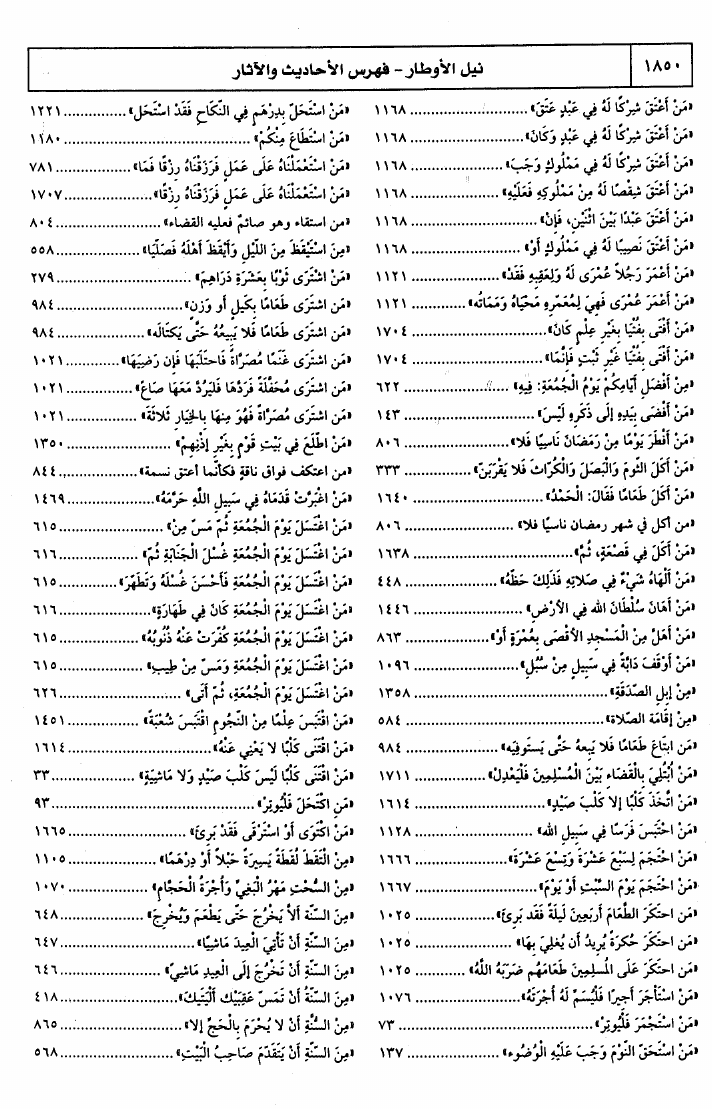 ١٨٥٠
نيل الأوطار – فهرس الأحاديث والآثار
«مَنْ أَعْتَقَ شِرْكًا لَهُ فِي عَبْدٍ عَتَقَ» .......................... ١١٦٨
«مَنْ أَعْتَقَ شِرْكًا لَهُ فِي عَبْدٍ وَكَانَ» .......................... ١١٦٨
«مَنْ أَعْتَقَ شِرْكًا لَهُ فِي مَمْلُوكٍ وَجَبَ» .......................... ١١٦٨
«مَنْ أَعْتَقَ شِقْصًا لَهُ مِنْ مَمْلُوكِهِ فَعَلَيْهِ» .......................... ١١٦٨
«مَنْ أَعْتَقَ عَبْدًا بَيْنَ اثْنَيْنِ، فَإِنْ» .......................... ١١٦٨
«مَنْ أَعْتَقَ نَصِيبًا لَهُ فِي مَمْلُوكٍ أَوْ» .......................... ١١٦٨
«مَنْ أَعْمَرَ رَجُلاً عُمْرَى لَهُ وَلِعَقِبِهِ فَقَدْ» .......................... ١١٢١
«مَنْ أَعْمَرَ عُمْرَى فَهِيَ لِمُعْمَرِهِ مَحْيَاهُ وَمَمَاتَه» .......................... ١١٢١
«مَنْ أَفْتَى بِفُتْيَا بِغَيْرِ عِلْمٍ كَانَ» .......................... ١٧٠٤
«مَنْ أَفْتَى بِفُتْيَا غَيْرِ ثَبْتٍ فَإِنَّمَا» .......................... ١٧٠٤
«مِنْ أَفْضَلِ أَيَّامِكُمْ يَوْمُ الْجُمُعَةِ: فِيهِ» .......................... ٦٢٢
«مَنْ أَفْضَى بِيَدِهِ إِلَى ذَكَرِهِ لَيْسَ» .......................... ١٤٣
«مَنْ أَفْطَرَ يَوْمًا مِنْ رَمَضَانَ نَاسِيًا فَلا» .......................... ٨٠٦
«مَنْ أَكَلَ الثُّومَ وَالْبَصَلَ وَالْكُرَّاثَ فَلا يَقْرَبَنَّ» .......................... ٣٣٣
«مَنْ أَكَلَ طَعَامًا فَقَالَ: الْحَمْدُ» .......................... ١٦٤٠
«من أكل في شهر رمضان ناسيًا فلا» .......................... ٨٠٦
«مَنْ أَكَلَ فِي قَصْعَةٍ، ثُمَّ» .......................... ١٦٣٨
«مَنْ أَلْهَاهُ شَيْءٌ فِي صَلاتِهِ فَذَلِكَ حَظُّهُ» .......................... ٤٤٨
«مَنْ أَهَانَ سُلْطَانَ الله فِي الأَرْضِ» .......................... ١٤٤٦
«مَنْ أَهَلَّ مِنْ الْمَسْجِدِ الأَقْصَى بِعُمْرَةٍ أَوْ» .......................... ٨٦٣
«مَنْ أَوْقَفَ دَابَّةً فِي سَبِيلٍ مِنْ سُبُلِ» .......................... ١٠٩٦
«مِنْ إِبِلِ الصَّدَقَةِ» .......................... ١٣٥٨
«مِنْ إِقَامَةِ الصَّلاة» .......................... ٥٨٤
«مَنِ ابْتَاعَ طَعَامًا فَلا يَبِعهُ حَتَّى يَستَوفِيه» .......................... ٩٨٤
«مَنْ اُبْتُلِيَ بِالْقَضَاءِ بَيْنَ الْمُسْلِمِينَ فَلْيَعْدِلْ» .......................... ١٧١١
«مَنْ اتَّخَذَ كَلْبًا إلا كَلْبَ صَيْدٍ» .......................... ١٦١٤
«مَنْ احْتَبَسَ فَرَسًا فِي سَبِيلِ الله» .......................... ١١٢٨
«مَنْ احْتَجَمَ لِسَبْعَ عَشْرَةَ وَتِسْعَ عَشْرَةَ» .......................... ١٦٦٦
«مَنْ احْتَجَمَ يَوْمَ السَّبْتِ أَوْ يَوْمَ» .......................... ١٦٦٧
«مَن احتَكَرَ الطَّعَامَ أَرْبَعِينَ لَيلَةً فَقَد بَرِئَ» .......................... ١٠٢٥
«مَن احتَكَرَ حُكرَةً يُرِيدُ أَن يُغلِيَ بِهَا» .......................... ١٠٢٥
«مَن احتَكَرَ عَلَى المُسلِمِينَ طَعَامَهُم ضَرَبَهُ اللَّهُ» .......................... ١٠٢٥
«مَنْ اسْتَأْجَرَ أَجِيرًا فَلْيُسَمِّ لَهُ أُجْرَتَهُ» .......................... ١٠٧٦
«مَنْ اسْتَجْمَرَ فَلْيُوتِرْ» .......................... ٧٣
«مَنْ اسْتَحَقَّ النَّوْمَ وَجَبَ عَلَيْهِ الْوُضُوء» .......................... ١٣٧
«مَنْ اسْتَحَلَّ بِدِرْهَمٍ فِي النِّكَاحِ فَقَدْ اسْتَحَل» .......................... ١٢٢١
«مَنْ اسْتَطَاعَ مِنْكُمْ» .......................... ١١٨٠
«مَنْ اسْتَعْمَلْنَاهُ عَلَى عَمَلٍ فَرَزَقْنَاهُ رِزْقًا فَمَا» .......................... ٧٨١
«مَنْ اسْتَعْمَلْنَاهُ عَلَى عَمَلٍ فَرَزَقْنَاهُ رِزْقًا» .......................... ١٧٠٧
«من استقاء وهو صائمٌ فعليه القضاء» .......................... ٨٠٤
«مِنَ اسْتَيْقَظَ مِنَ اللَّيْلِ وَأَيْقَظَ أَهْلَهُ فَصَلَّيَا» .......................... ٥٥٨
«مَنْ اشْتَرَى ثَوْبًا بِعَشَرَةِ دَرَاهِمَ» .......................... ٢٧٩
«مَن اشْتَرَى طَعَامًا بِكَيلٍ أو وَزنٍ» .......................... ٩٨٤
«مَن اشْتَرَى طَعَامًا فَلا يَبِيعُهُ حَتَّى يَكتَالَه» .......................... ٩٨٤
«مَن اشتَرَى غَنَمًا مُصَرَّاةً فَاحتَلَبَهَا فَإِن رَضِيَهَا» .......................... ١٠٢١
«مَن اشتَرَى مُحَفَّلَةً فَرَدَّهَا فَليَرُدَّ مَعَهَا صَاعً» .......................... ١٠٢١
«مَن اشتَرَى مُصَرَّاةً فَهُوَ مِنهَا بِالخِيَارِ ثَلاثَةَ» .......................... ١٠٢١
«مَنْ اطَّلَعَ فِي بَيْتِ قَوْمٍ بِغَيْرِ إذْنِهِمْ» .......................... ١٣٥٠
«من اعتكف فواق ناقةٍ فكأنّما أعتق نسمة» .......................... ٨٤٤
«مَنْ اغْبَرَّتْ قَدَمَاهُ فِي سَبِيلِ اللَّهِ حَرَّمَهُ» .......................... ١٤٦٩
«مَنْ اغْتَسَلَ يَوْمَ الْجُمُعَةِ ثُمَّ مَسَّ مِنْ» .......................... ٦١٥
«مَنْ اغْتَسَلَ يَوْمَ الْجُمُعَةِ غُسْلَ الْجَنَابَةِ ثُمَّ» .......................... ٦١٦
«مَنْ اغْتَسَلَ يَوْمَ الْجُمُعَةِ فَأَحْسَنَ غُسْلَهُ وَتَطَهَّرَ» .......................... ٦١٥
«مَنْ اغْتَسَلَ يَوْمَ الْجُمُعَةِ كَانَ فِي طَهَارَةٍ» .......................... ٦١٦
«مَنْ اغْتَسَلَ يَوْمَ الْجُمُعَةِ كُفِّرَتْ عَنْهُ ذُنُوبُهُ» .......................... ٦١٥
«مَنْ اغْتَسَلَ يَوْمَ الْجُمُعَةِ وَمَسَّ مِنْ طِيبِ» .......................... ٦١٥
«مَنْ اغْتَسَلَ يَوْمَ الْجُمُعَةِ، ثُمَّ أَتَى» .......................... ٦٢٦
«مَنْ اقْتَبَسَ عِلْمًا مِنْ النُّجُومِ اقْتَبَسَ شُعْبَةً» .......................... ١٤٥١
«مَنْ اقْتَنَى كَلْبًا لا يُغْنِي عَنْهُ» .......................... ١٦١٤
«مَنْ اقْتَنَى كَلْبًا لَيْسَ كَلْبَ صَيْدٍ وَلا مَاشِيَةٍ» .......................... ٣٣
«مَنِ اكْتَحَلَ فَلْيُوتِرْ» .......................... ٩٣
«مَنْ اكْتَوَى أَوْ اسْتَرْقَى فَقَدْ بَرِئَ» .......................... ١٦٦٥
«مِنْ الْتَقَطَ لُقَطَةً يَسِيرَةً حَبْلاً أَوْ دِرْهَمًا» .......................... ١١٠٥
«مِنْ السُّحْتِ مَهْرُ الْبَغِيِّ وَأُجْرَةُ الْحَجَّامِ» .......................... ١٠٧٠
«مِنَ السُّنَّة ألاَ يَخْرُجَ حَتَّى يَطْعَمَ وَيُخْرِجَ» .......................... ٦٤٨
«مِنَ السُّنَّةِ أَنْ تَأْتِيَ الْعِيدَ مَاشِيًا» .......................... ٦٤٧
«مِنَ السُّنَّةِ أَنْ تَخْرُجَ إلَى الْعِيدِ مَاشِيً» .......................... ٦٤٦
«مِنَ السُّنَّةِ أَنْ تَمَسَّ عَقِبَيْكَ أَلْيَتَيكَ» .......................... ٤١٨
«مِنَ السُّنَّةِ أَنْ لا يُحْرَمَ بِالْحَجِّ إلا» .......................... ٨٦٥
«مِنَ السُّنَّةِ أَنْ يَتَقَدَّمَ صَاحِبُ الْبَيْتِ» .......................... ٥٦٨